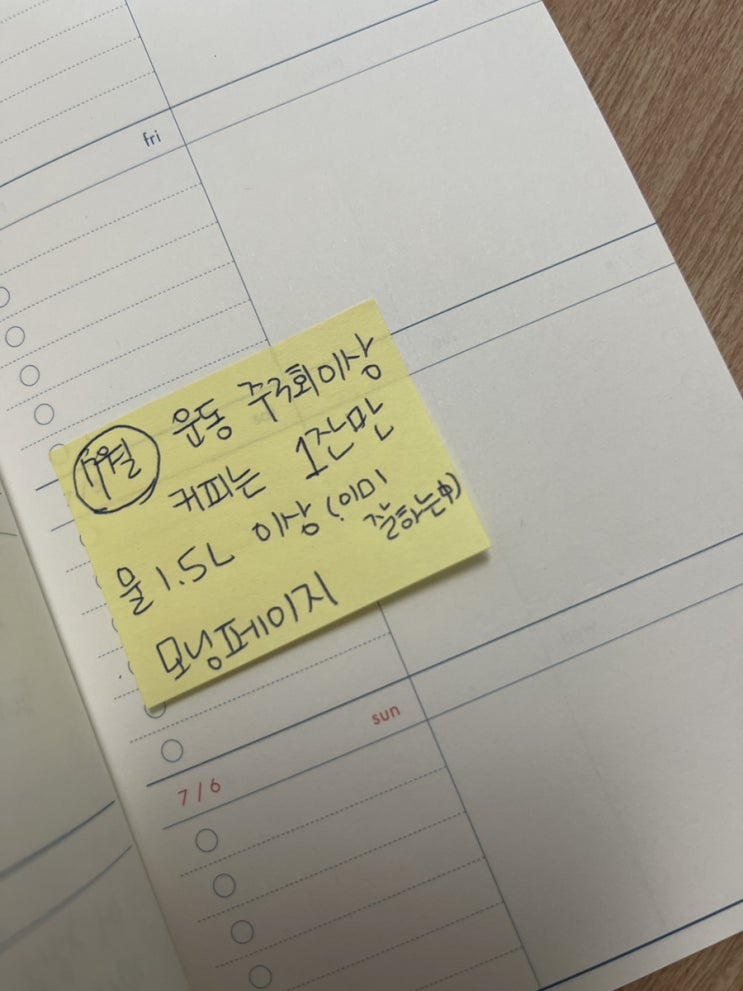 fri
7월 운동 주3회이상
커피는 1잔만
물 1.5L 이상 (이미
잘하는中)
모닝페이지
sun
7/6